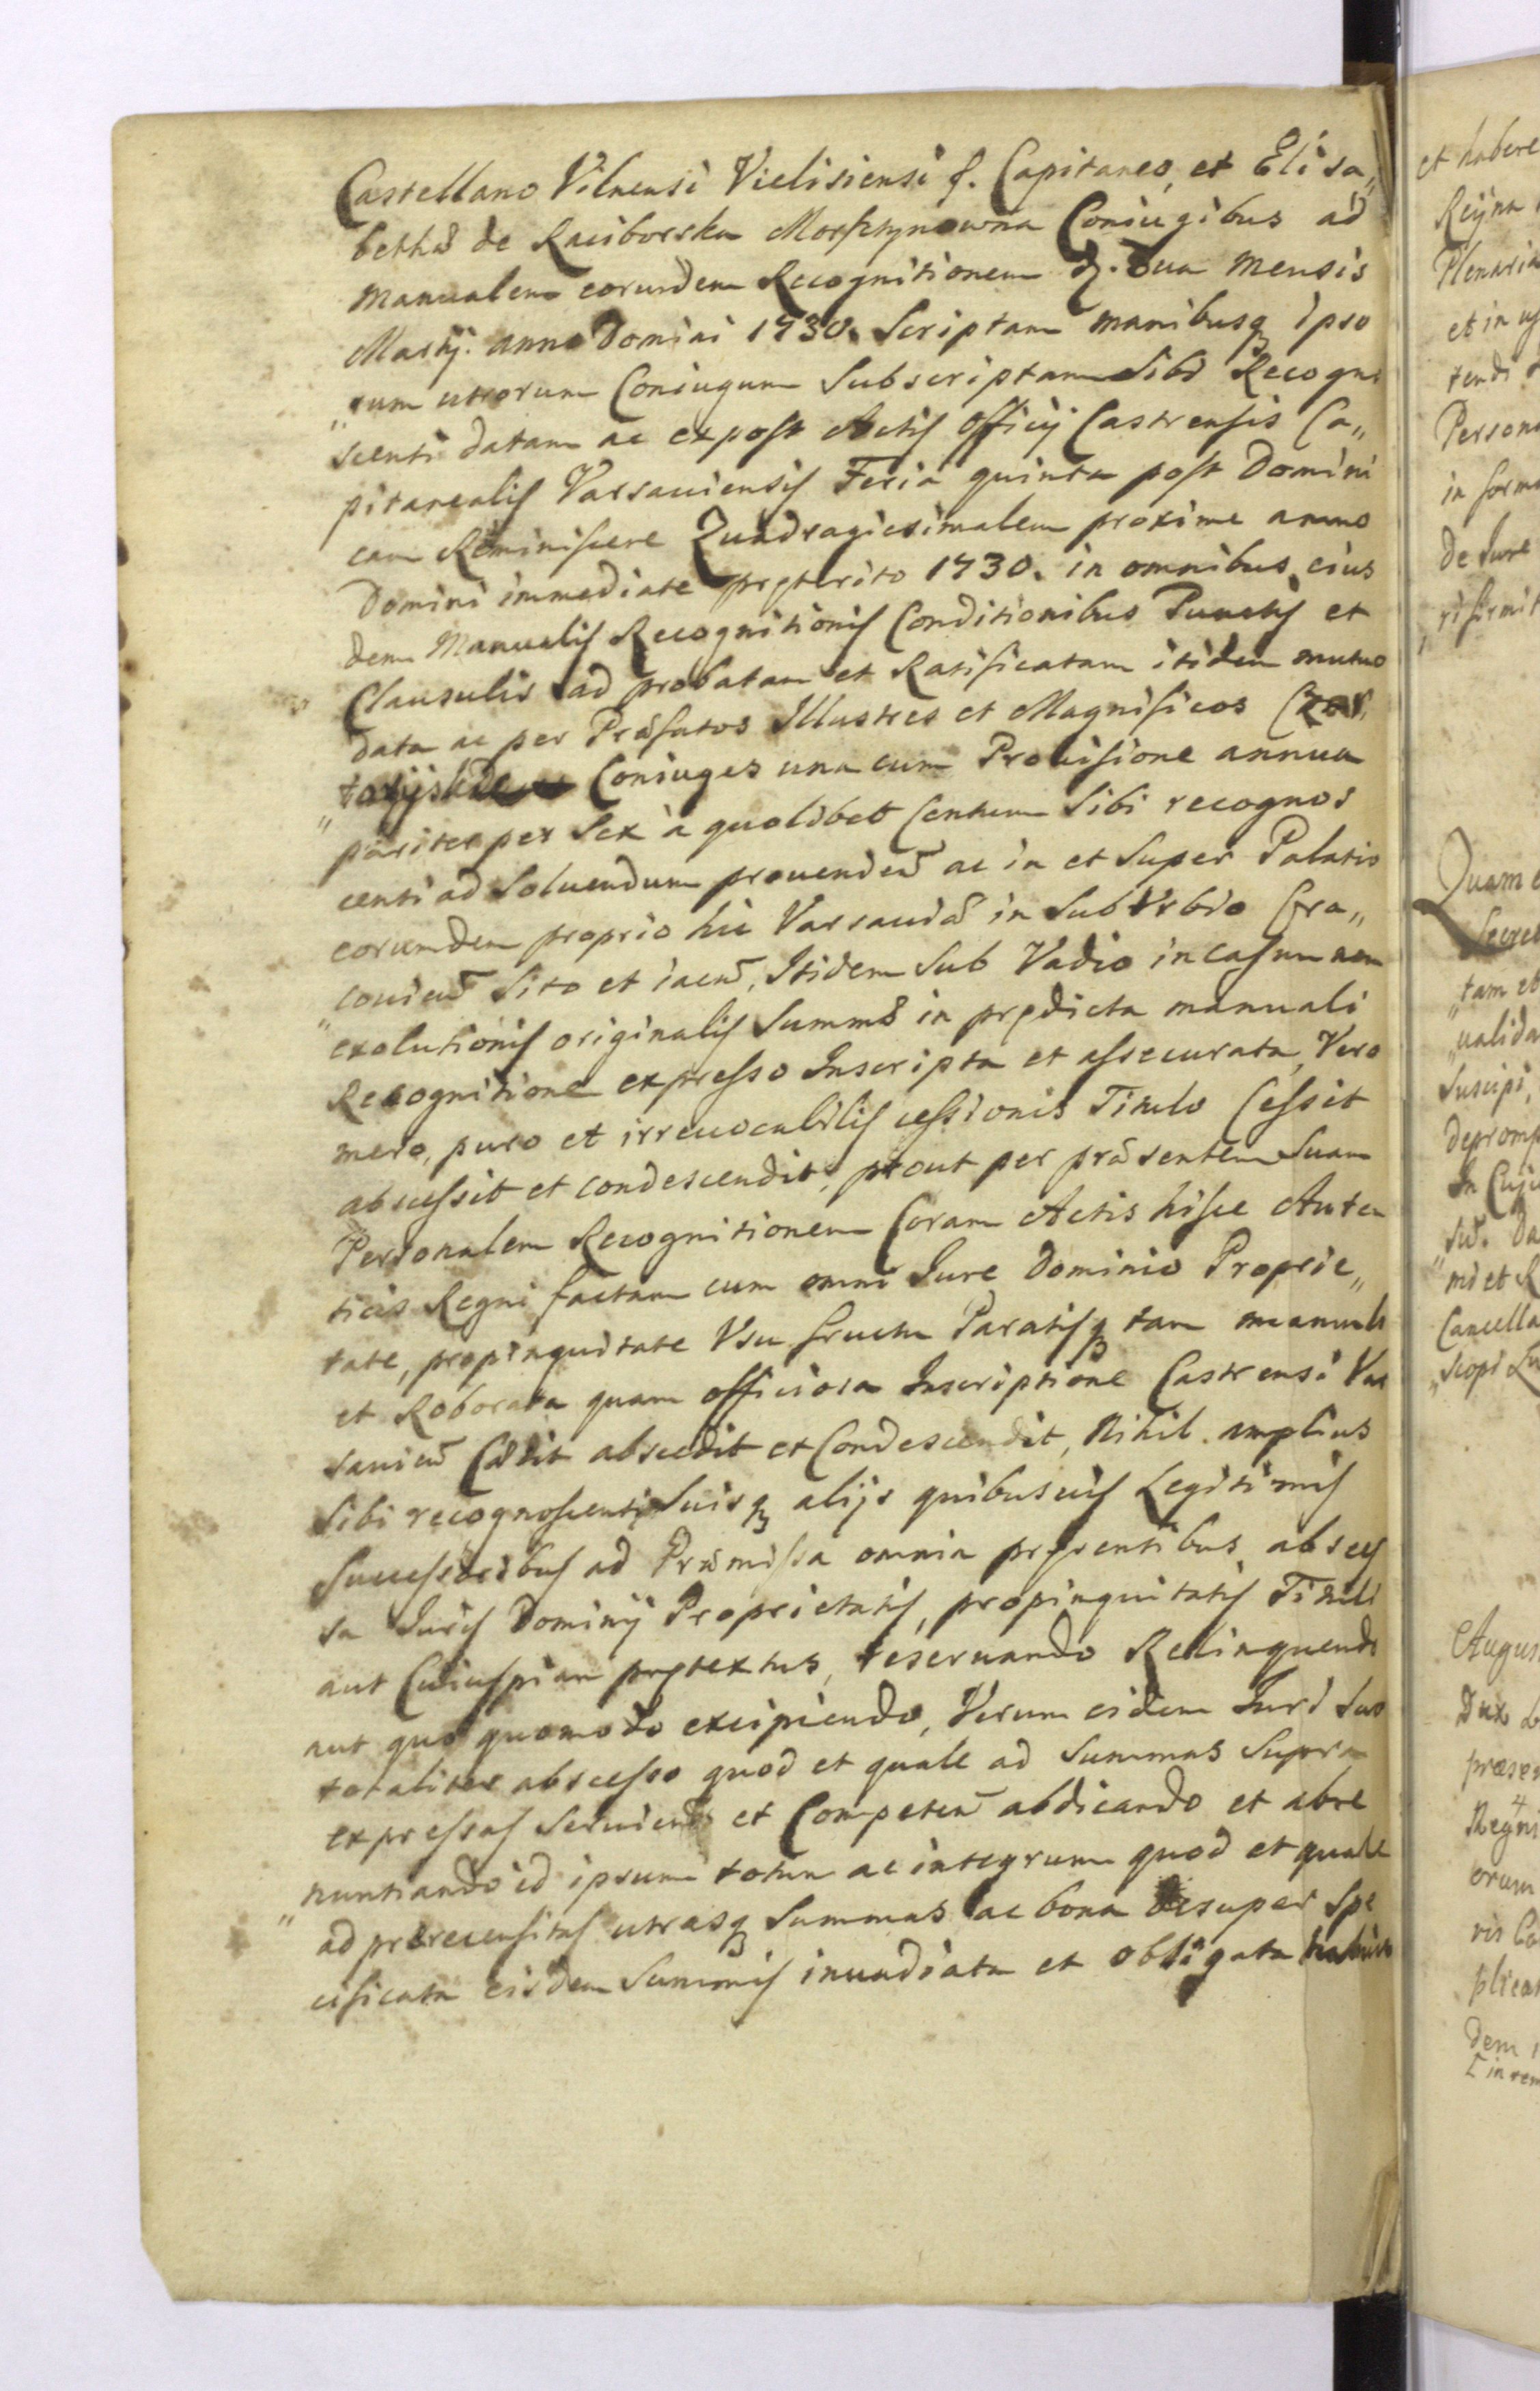 Castellano Vilnensi Vielisiensi &. Capitaneo, et Elisa„
bethæ de Raciborsko Morsztynowna Coniugibus ad
Manualem eorundem Recognitionem d. 2da Mensis
Martij. anno Domini 1730. Scriptam manibusq ipso
„rum utrorum Coniugum Subscriptam Sibi Recogno
scenti datam ac expost Actis Officij Castrensis Ca„
pitanealis Varsauiensis Feria quinta post Domini
cam Reminiscere Quadragiesimalem proxime anno
Domini immediate pręterito 1730. in omnibus eius
dem Manualis Recognitionis Conditionibus Punctis et
Clausulis ad probatam et Ratificatam itidem mutuo
data ac per Præfatos Illustres et Magnificos Czar„
„toryjskie Coniuges una cum Prouisione annua
pariter per Sex à quolibet Centum Sibi recognos
centi ad Soluendum prouenden ac in et Super Palatio
eorundem proprio hic Varsauiæ in SubVrbio Cra„
„couien Sito et iacen, Itidem Sub Vadio in casum non
exolutionis originalis Summæ in prędicta manuali
Recognitione expresso Inscripta et assecurata, Vero
mero, puro et irreuocabilis cessionis Titulo Cessit
abscessit et condescendit, prout per præsentem Suam
Personalem Recognitionem Coram Actis hisce Auten
ticis Regni factam cum omni Iure Dominio Proprie„
tate, propinquitate Vsu fructu Paratisq tam manuali
et Roborata quam officiosa Inscriptione Castrensi Var
sauien Cedit abscedit et Condescendit, Nihil amplius
Sibi recognoscenti Suisq alijs quibusuis Legitimis
Successoribus ad Præmissa omnia pręsentibus abscess
sa Iuris Dominij Proprietatis, propinquitatis Tituli
aut Cuiuspiam prętextus, reseruando Relinquendo
aut quo quomodo excipiendo, Verum eidem Iuri Suo
totaliter abscesso quod et quale ad Summas Supra
expressas Seruien et Competen abdicando et abre
„nuntiando id ipsum totum ac integrum quod et quale
ad prærecensitas utrasq Summas ac bona desuper Spe
cificata eisdem Summis inuadiata et obligata habuit
et habere
Regna
Plenaria
et in
tendi
Person
in form
de Iure
Quam
Secret
„tam et
„ualida
Suscipi,
deprom
In Cuju
mi et R
Cancella
„scopi
Augus
Dux
præsen
Regni
orum
vis
plicar
dem